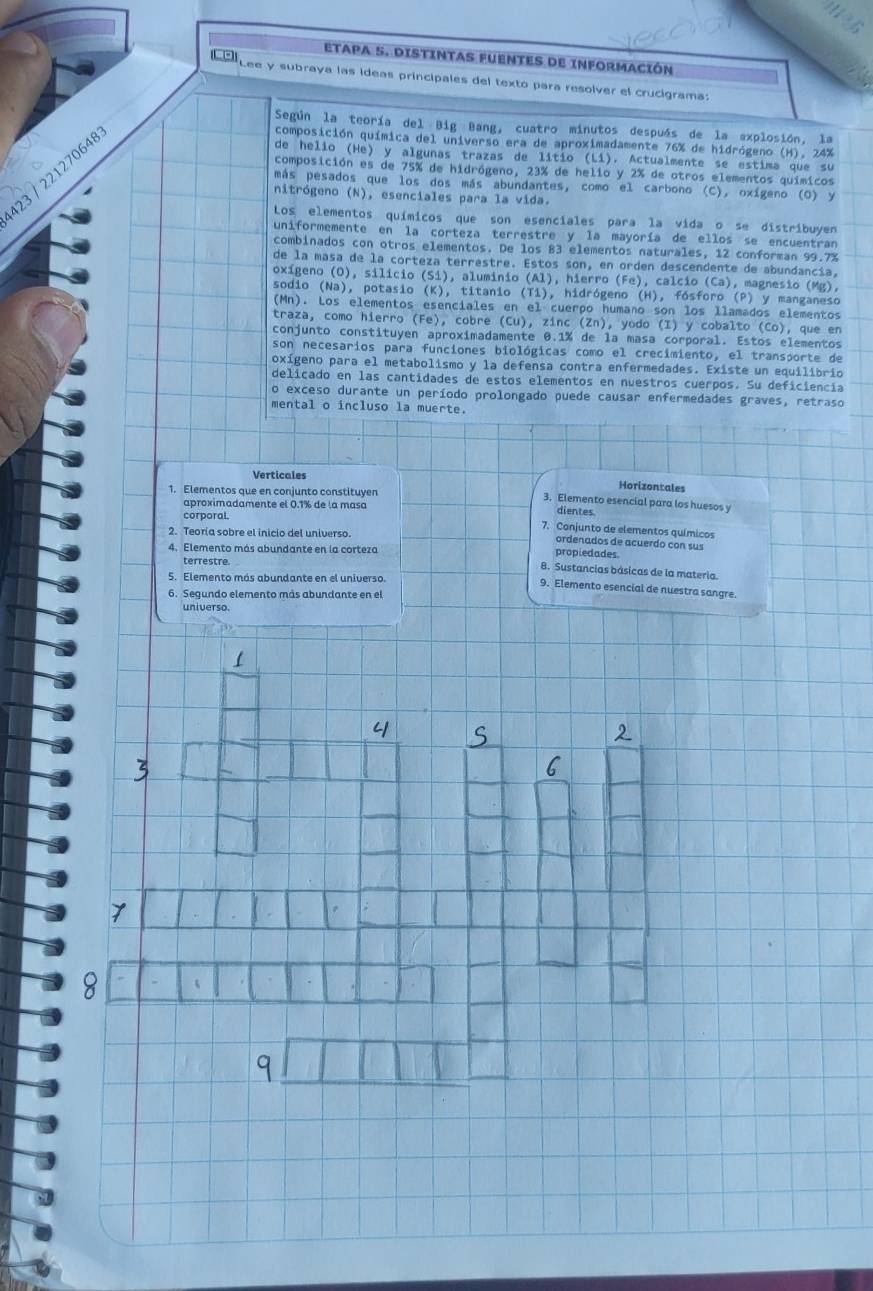 ETAPA 5. DISTINTAS FUENTES DE INFORMACIÓN
Lee y subraya las ideas principales del texto para resolver el crucigrama:
84423 / 2212706483
Según la teoría del Big Bang, cuatro minutos después de la explosión, la
composición química del universo era de aproximadamente 76% de hidrógeno (H), 24%
de helio (He) y algunas trazas de litio (Li). Actualmente se estima que su
composición es de 75% de hidrógeno, 23% de helio y 2% de otros elementos químicos
más pesados que los dos más abundantes, como el carbono (C), oxígeno (O) y
nitrógeno (N), esenciales para la vida.
Los elementos químicos que son esenciales para la vida o se distribuyen
uniformemente en la corteza terrestre y la mayoría de ellos se encuentran
combinados con otros elementos. De los 83 elementos naturales, 12 conforman 99.7%
de la masa de la corteza terrestre. Estos son, en orden descendente de abundancia,
oxígeno (O), silicio (Si), aluminio (Al), hierro (Fe), calcio (Ca), magnesio (Mg),
sodio (Na), potasio (K), titanio (Ti), hidrógeno (H), fósforo (P) y manganeso
(Mn). Los elementos esenciales en el cuerpo humano son los llamados elementos
traza, como hierro (Fe), cobre (Cu), zinc (Zn), yodo (I) y cobalto (Co), que en
conjunto constituyen aproximadamente 0.1% de la masa corporal. Estos elementos
son necesarios para funciones biológicas como el crecimiento, el transporte de
oxígeno para el metabolismo y la defensa contra enfermedades. Existe un equilibrio
delicado en las cantidades de estos elementos en nuestros cuerpos. Su deficiencia
o exceso durante un período prolongado puede causar enfermedades graves, retraso
mental o incluso la muerte.
Verticales
1. Elementos que en conjunto constituyen
aproximadamente el 0.1% de la masa
corporal.
2. Teoría sobre el inicio del universo.
4. Elemento más abundante en la corteza
terrestre.
5. Elemento más abundante en el universo.
6. Segundo elemento más abundante en el
universo.
Horizontales
3. Elemento esencial para los huesos y
dientes.
7. Conjunto de elementos químicos
ordenados de acuerdo con sus
propiedades.
8. Sustancias básicas de la materia.
9. Elemento esencial de nuestra sangre.
1
4
5
2
3
6
7
8
9